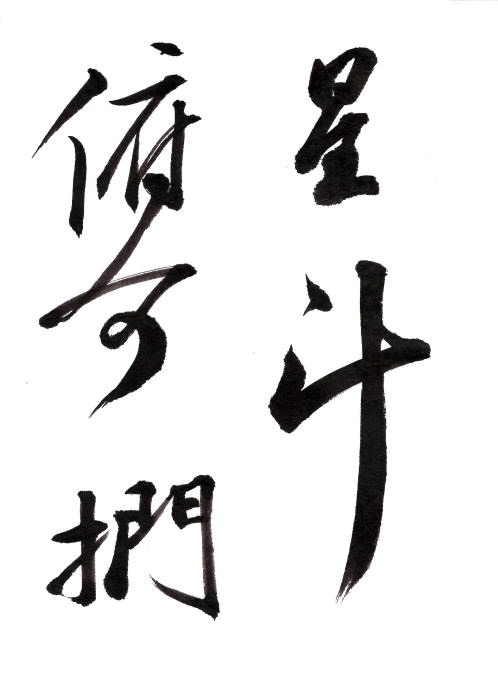 星斗
俯可捫